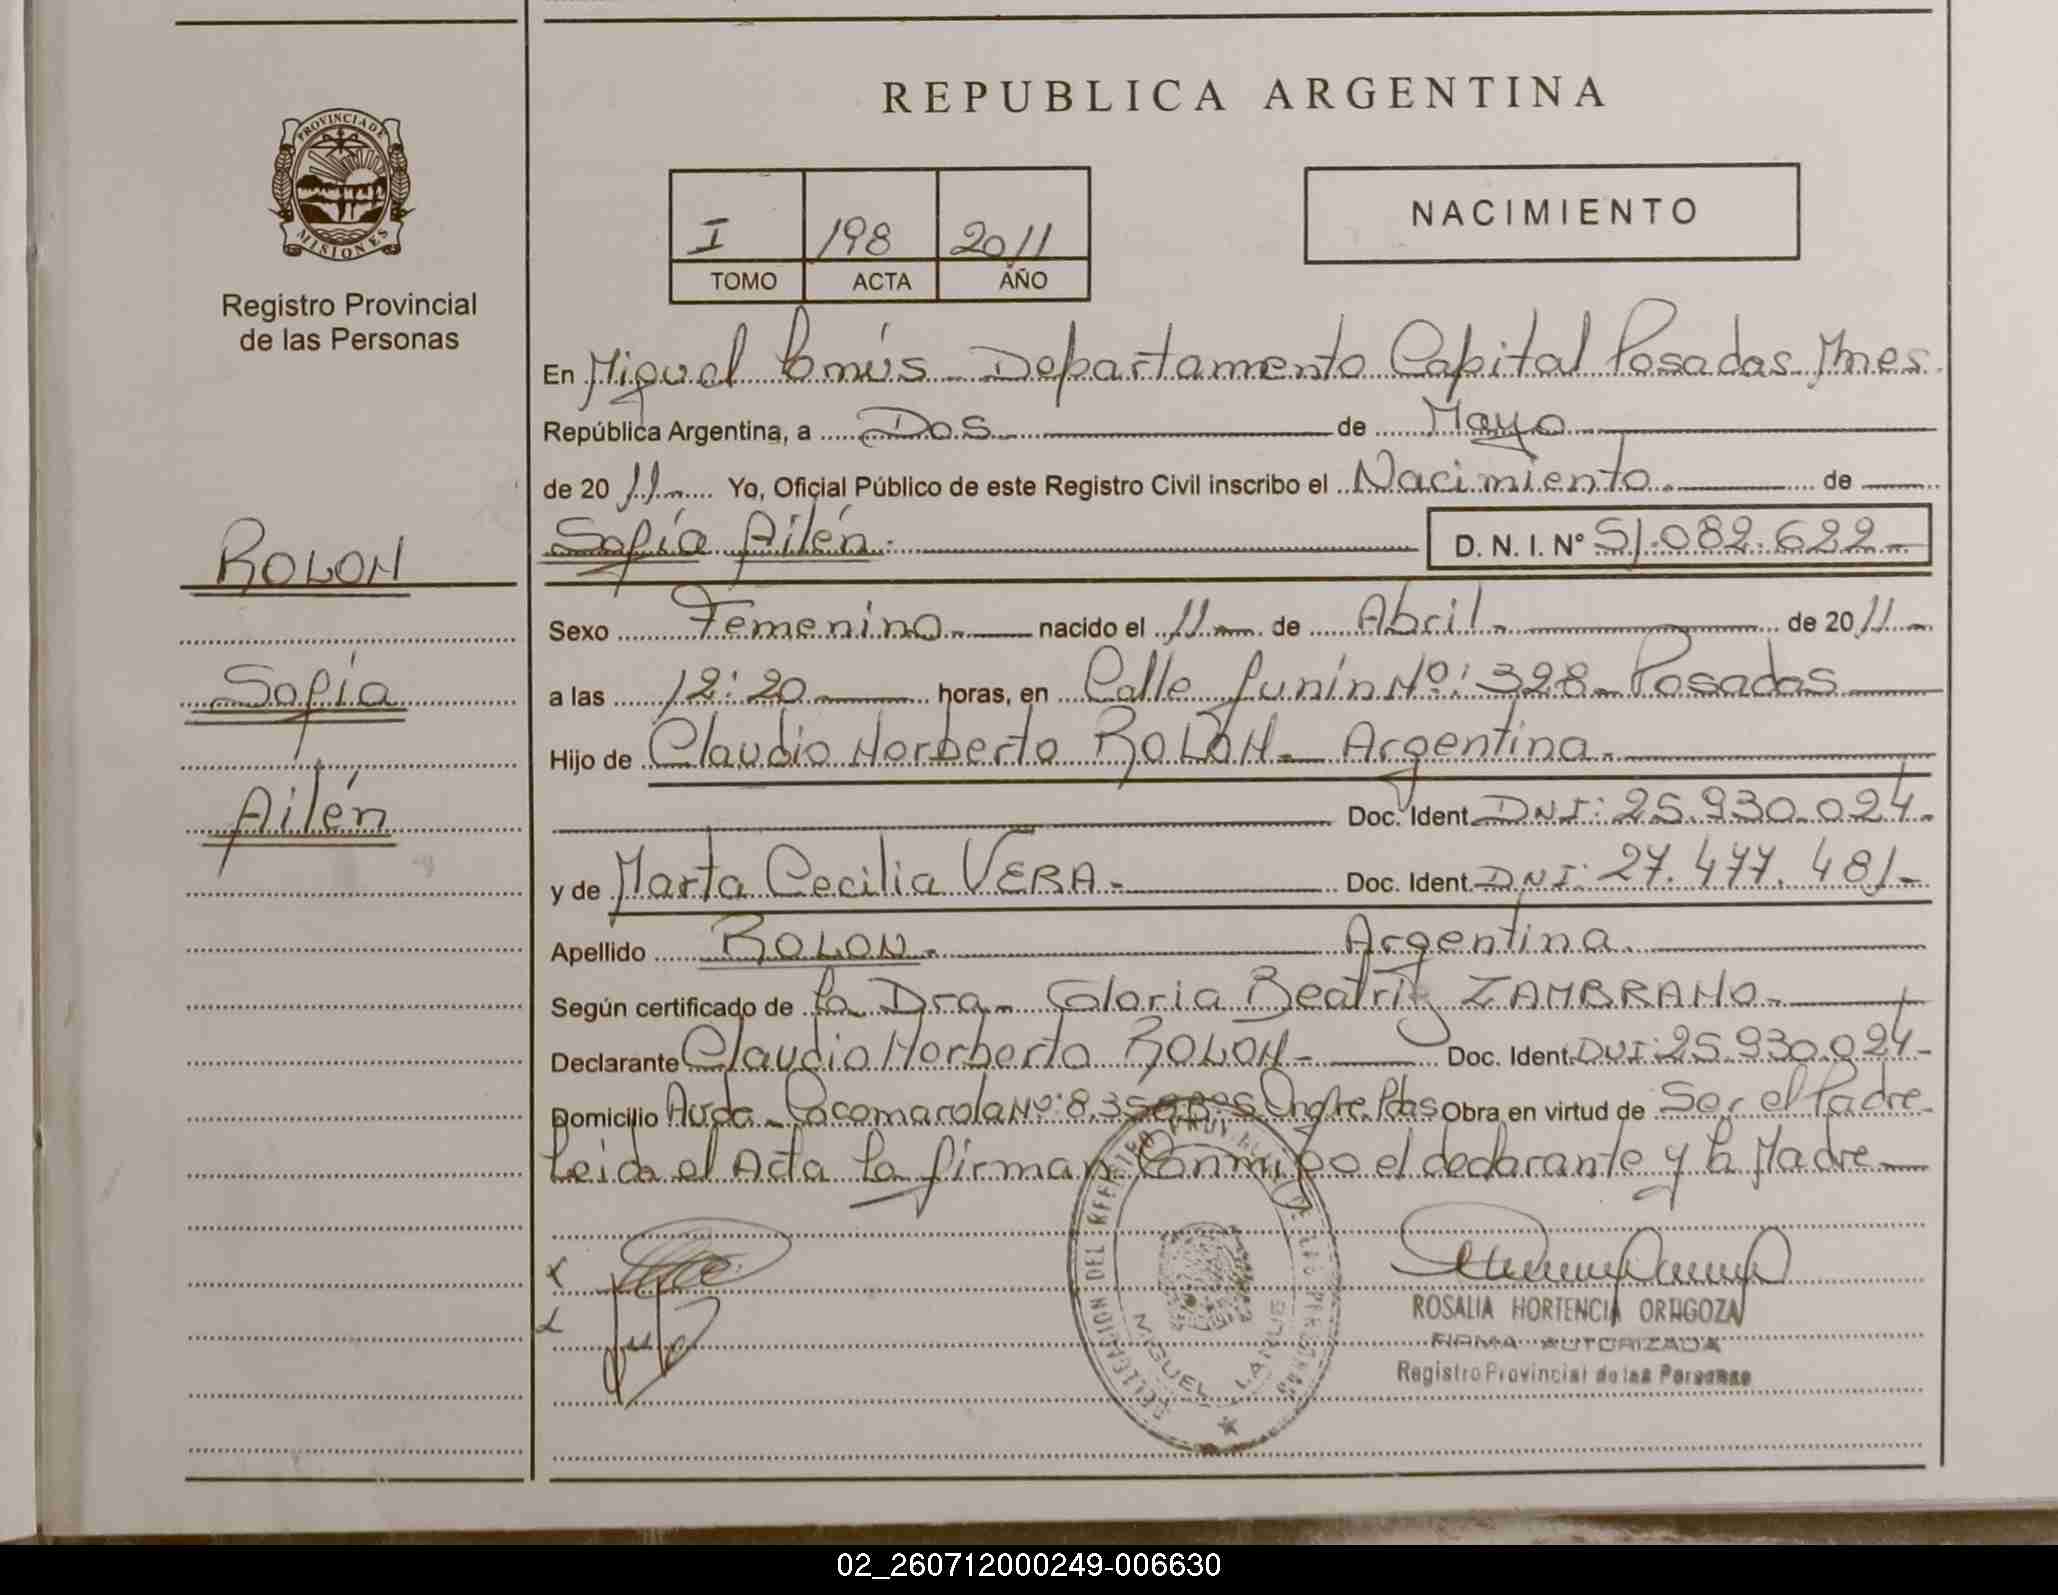 REPUBLICA ARGENTINA
PROVINCIA DE
MISIONES
Registro Provincial
de las Personas
NACIMIENTO
I 198 2011
TOMO ACTA AÑO
En Miguel Lanús - Departamento Capital Posadas Mnes.
República Argentina, a Dos de Mayo
de 20 11 Yo, Oficial Público de este Registro Civil inscribo el Nacimiento de
Sofía Ailén. D. N. I. Nº 51.082.622-
ROLON
Sofía
Ailén
Sexo Femenino nacido el 11 de Abril de 2011
a las 12:20 horas, en Calle Junín Nº: 328 - Posadas
Hijo de Claudio Norberto ROLON - Argentina.
Doc. Ident. DNI: 25.930.024.
y de Marta Cecilia VERA - Doc. Ident. DNI: 27.477.481-
Apellido ROLON. Argentina.
Según certificado de la Dra. Gloria Beatriz ZAMBRANO-
Declarante Claudio Norberto ROLON- Doc. Ident. DNI: 25.930.024-
Domicilio Avda. Cocomarola Nº: 8.358 Pdas Obra en virtud de Ser el Padre
Leida el Acta la firman Conmigo el declarante y la Madre
DELEGACION DEL REGISTRO PROVINCIAL DE LAS PERSONAS
MIGUEL LANUS
ROSALIA HORTENCIA ORTIGOZA
FIRMA AUTORIZADA
Registro Provincial de las Personas
02_260712000249-006630